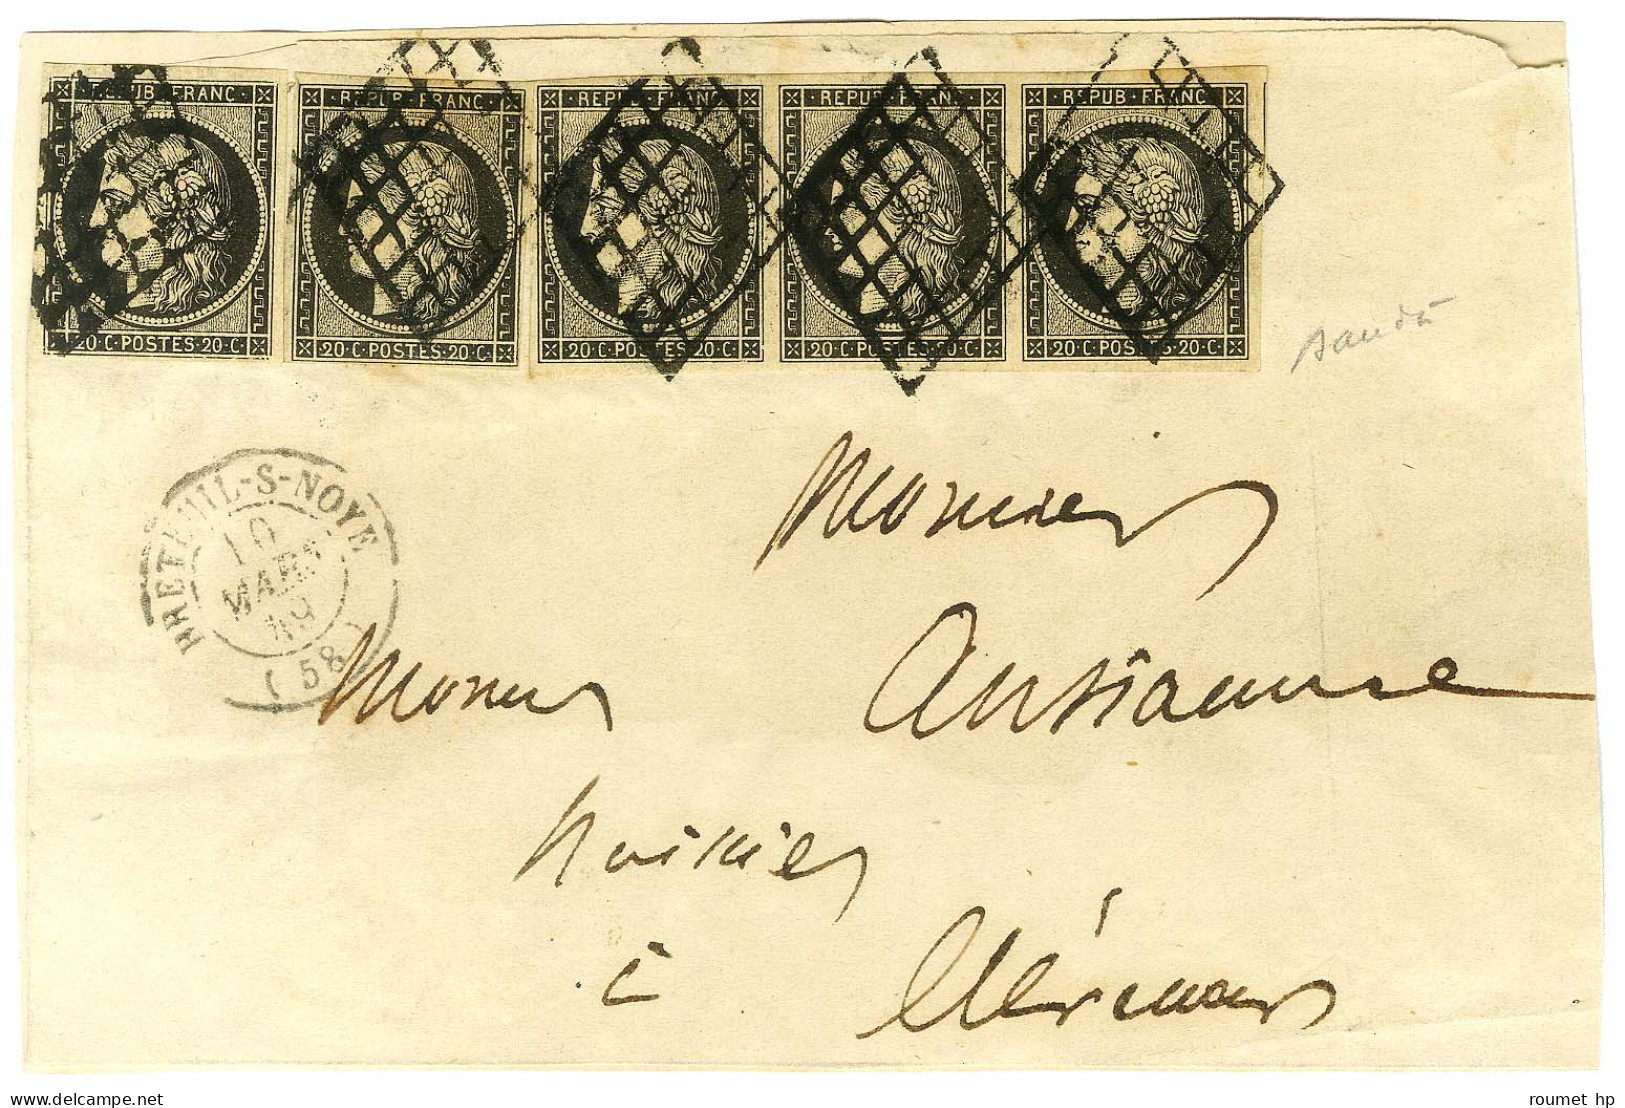 REPUB FRANC REPUB FRANC REPUB FRANC REPUB FRANC REPUB FRANC
20·C·POSTES·20·C 20·C·POSTES·20·C 20·C·POSTES·20·C 20·C·POSTES·20·C 20·C·POSTES·20·C
BRETEUIL-S-NOYE
10
MARS
49
(58)
Monsieur
Monsieur
huissier
à
Clermont
www.delcampe.net
roumet hp